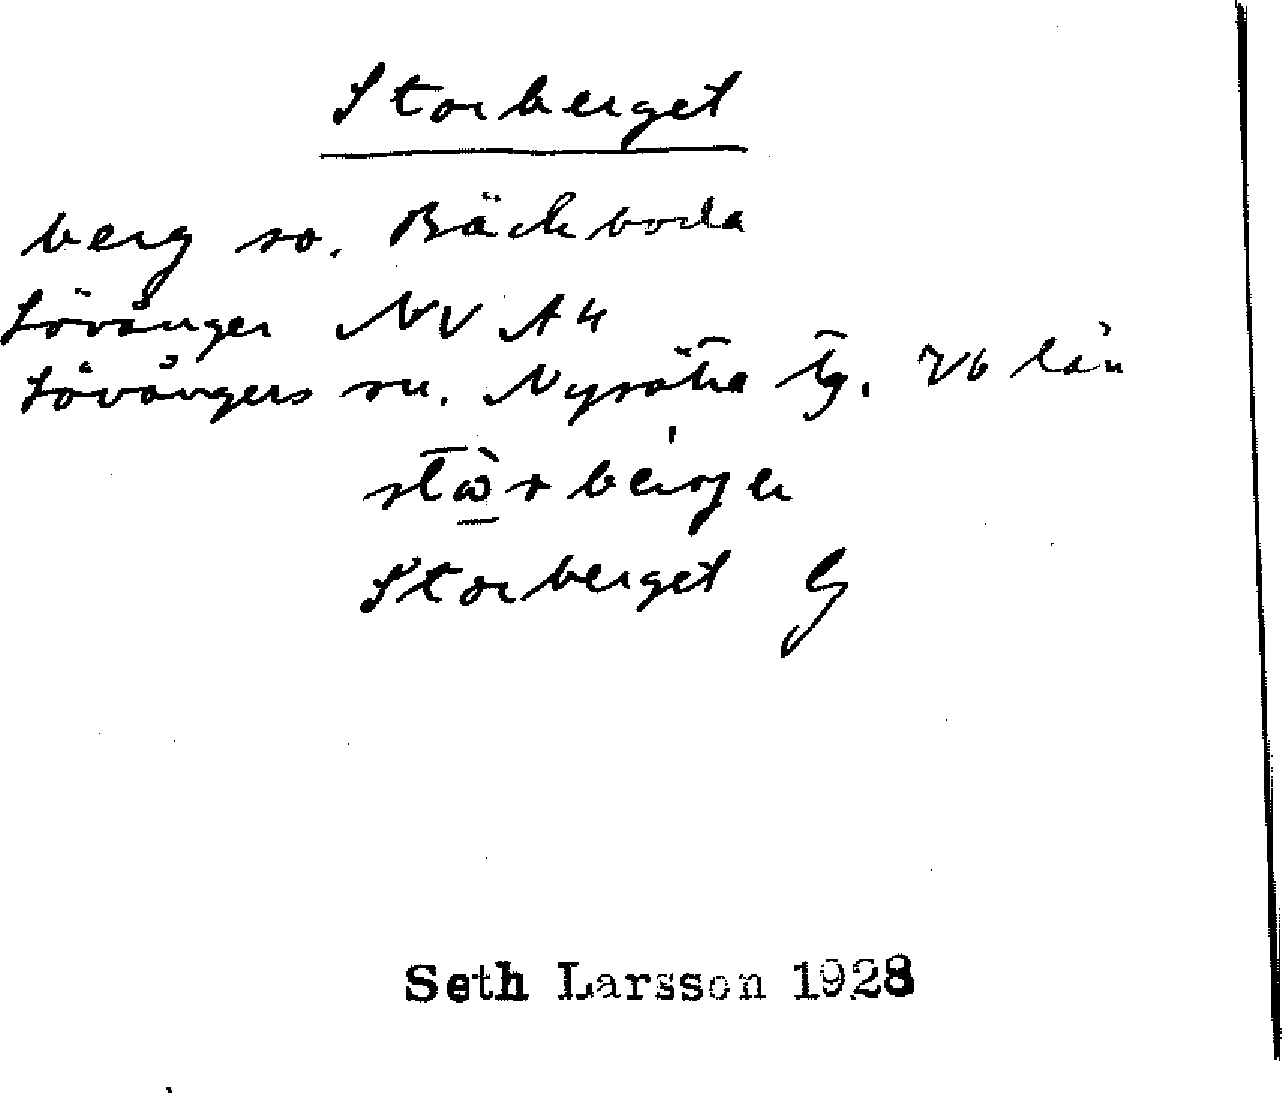 Storberget
berg so. Bäckboda
Lövånger NV A4
Lövångers sn. Nysätra tg. Vb län
Storberget G
Seth Larsson 1928